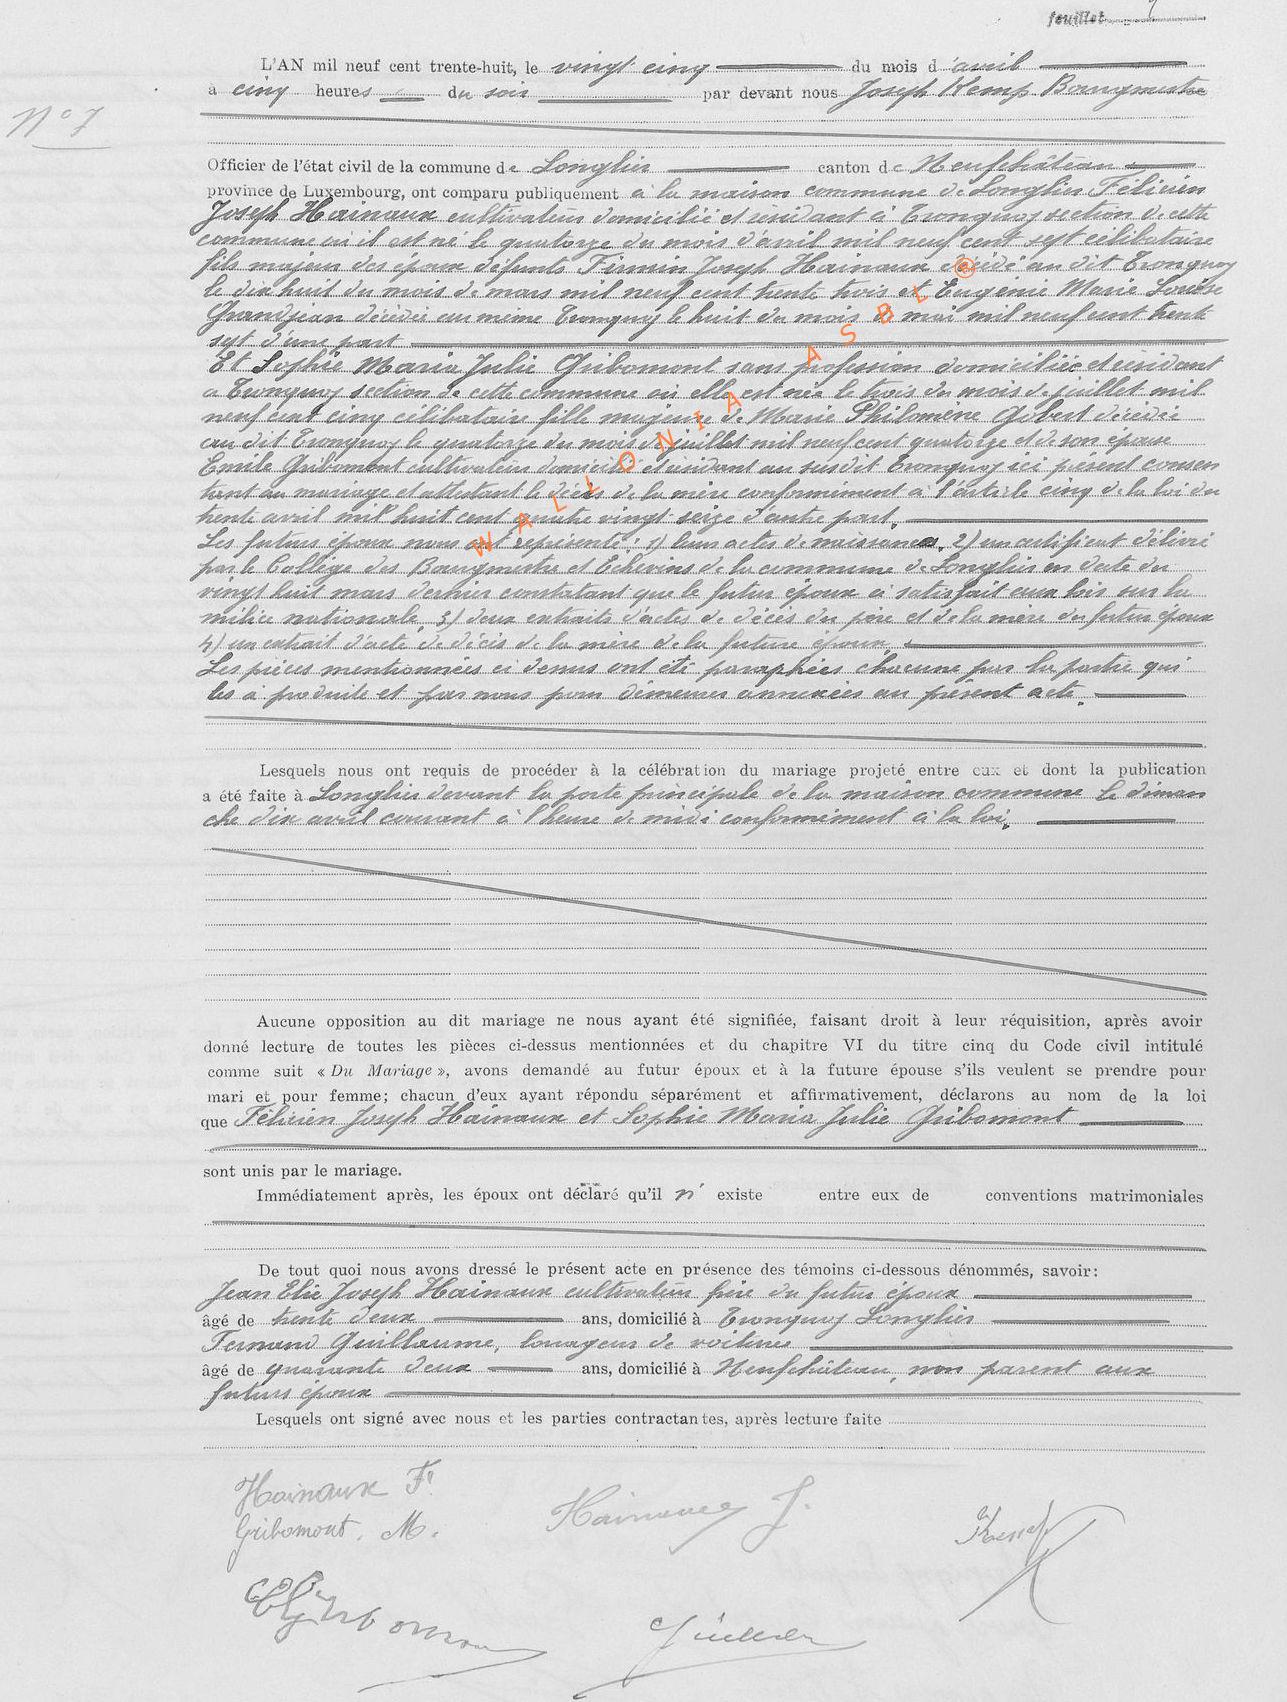 feuillet
L'AN mil neuf cent trente-huit, le vingt cinq du mois d'avril
à cinq heures du soir par devant nous Joseph Kemp Bourgmestre
N° 7
Officier de l'état civil de la commune de Longlier canton de Neufchâteau
province de Luxembourg, ont comparu publiquement à la maison commune de Longlier Félicien
Joseph Hainaux cultivateur domicilié et résidant à Tronquoy section de cette
commune où il est né le quatorze du mois d'avril mil neuf cent sept célibataire
fils majeur des époux défunts Firmin Joseph Hainaux décédé au dit Tronquoy
le dix huit du mois de mars mil neuf cent trente trois et Eugénie Marie Louise
Grandjean décédée au même Tronquoy le huit du mois de mai mil neuf cent trente
sept d'une part
Et Sophie Maria Julie Gribomont sans profession domiciliée et résidant
à Tronquoy section de cette commune où elle est née le trois du mois de juillet mil
neuf cent cinq célibataire fille majeure de Marie Philomène Gobert décédée
au dit Tronquoy le quatorze du mois de juillet mil neuf cent quatorze et de son époux
Emile Gribomont cultivateur domicilié et résidant au susdit Tronquoy ici présent consen
tant au mariage et attestant le décès de la mère conformément à l'article cinq de la loi du
trente avril mil huit cent quatre vingt seize d'autre part.
Les futurs époux nous ont représenté : 1) leurs actes de naissances, 2) un certificat délivré
par le Collège des Bourgmestre et Echevins de la commune de Longlier en date du
vingt huit mars dernier constatant que le futur époux a satisfait aux lois sur la
milice nationale, 3) deux extraits d'actes de décès du père et de la mère du futur époux
4) un extrait d'acte de décès de la mère de la future épouse.
Les pièces mentionnées ci dessus ont été paraphées chacune par la partie qui
les a produite et par nous pour demeurer annexées au présent acte.
Lesquels nous ont requis de procéder à la célébration du mariage projeté entre eux et dont la publication
a été faite à Longlier devant la porte principale de la maison commune le diman
che dix avril courant à l'heure de midi conformément à la loi.
Aucune opposition au dit mariage ne nous ayant été signifiée, faisant droit à leur réquisition, après avoir
donné lecture de toutes les pièces ci-dessus mentionnées et du chapitre VI du titre cinq du Code civil intitulé
comme suit « Du Mariage », avons demandé au futur époux et à la future épouse s'ils veulent se prendre pour
mari et pour femme; chacun d'eux ayant répondu séparément et affirmativement, déclarons au nom de la loi
que Félicien Joseph Hainaux et Sophie Maria Julie Gribomont
sont unis par le mariage.
Immédiatement après, les époux ont déclaré qu'il n' existe entre eux de conventions matrimoniales
De tout quoi nous avons dressé le présent acte en présence des témoins ci-dessous dénommés, savoir:
Jean Elie Joseph Hainaux cultivateur frère du futur époux
âgé de trente deux ans, domicilié à Tronquoy Longlier
Fernand Guillaume, louageur de voitures
âgé de quarante deux ans, domicilié à Neufchâteau, non parent aux
futurs époux
Lesquels ont signé avec nous et les parties contractantes, après lecture faite
Hainaux F.
Gribomont. M.
Hainaux J.
WALLONIA ASBL @